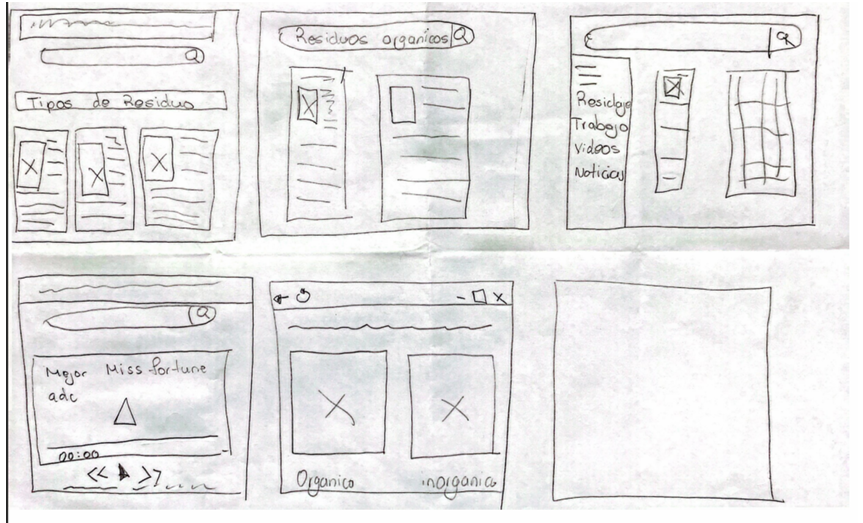 Tipos de Residuo
Residuos organicos
Resiclaje
Trabajo
Videos
Noticias
Mejor Miss fortune
adc
00:00
Organico
inorganico